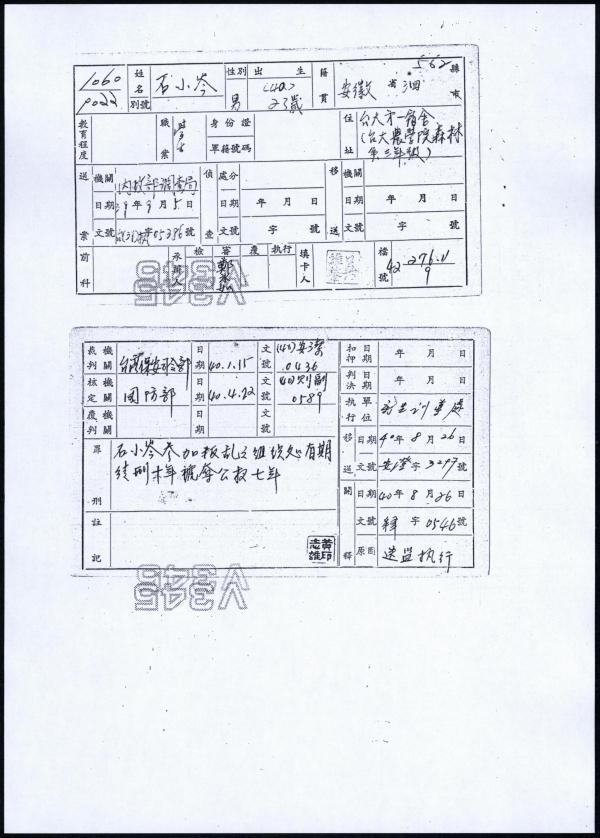 562
1060
9022
姓名 石小岑 性別 出生 籍貫 安徽 省 泗 縣市
別號 男 (40.) 23歲
教育程度 職業 學生 身份證 軍籍號碼 住址 台大第一宿舍
(台大農學院森林
第三年級)
送案 機關 內政部調查局 偵查 處分 移送 機關
日期 39年9月5日 日期 年 月 日 日期 年 月 日
文號 字05386號 文號 字 號 文號 字 號
前科 承辦人 檢 審 鄭 覆 執行 填卡人 檔號 276.11
42 9
V345
裁判機關 台灣保安司令部 日期 40.1.15 文號 (40)安潔
0436 扣押日期 年 月 日
核定機關 國防部 日期 40.4.22 文號 (40)則副
0589 判決日期 年 月 日
覆判機關 日期 文號 執行單位 新生訓導處
罪刑 石小岑參加叛乱之組織処有期
徒刑 年褫奪公权七年
移送 日期 40年8月26日
文號 安澄字3297號
開釋 日期 40年8月26日
文號 釋字0546號
原因 送監执行
註記 黃志雄印
V345